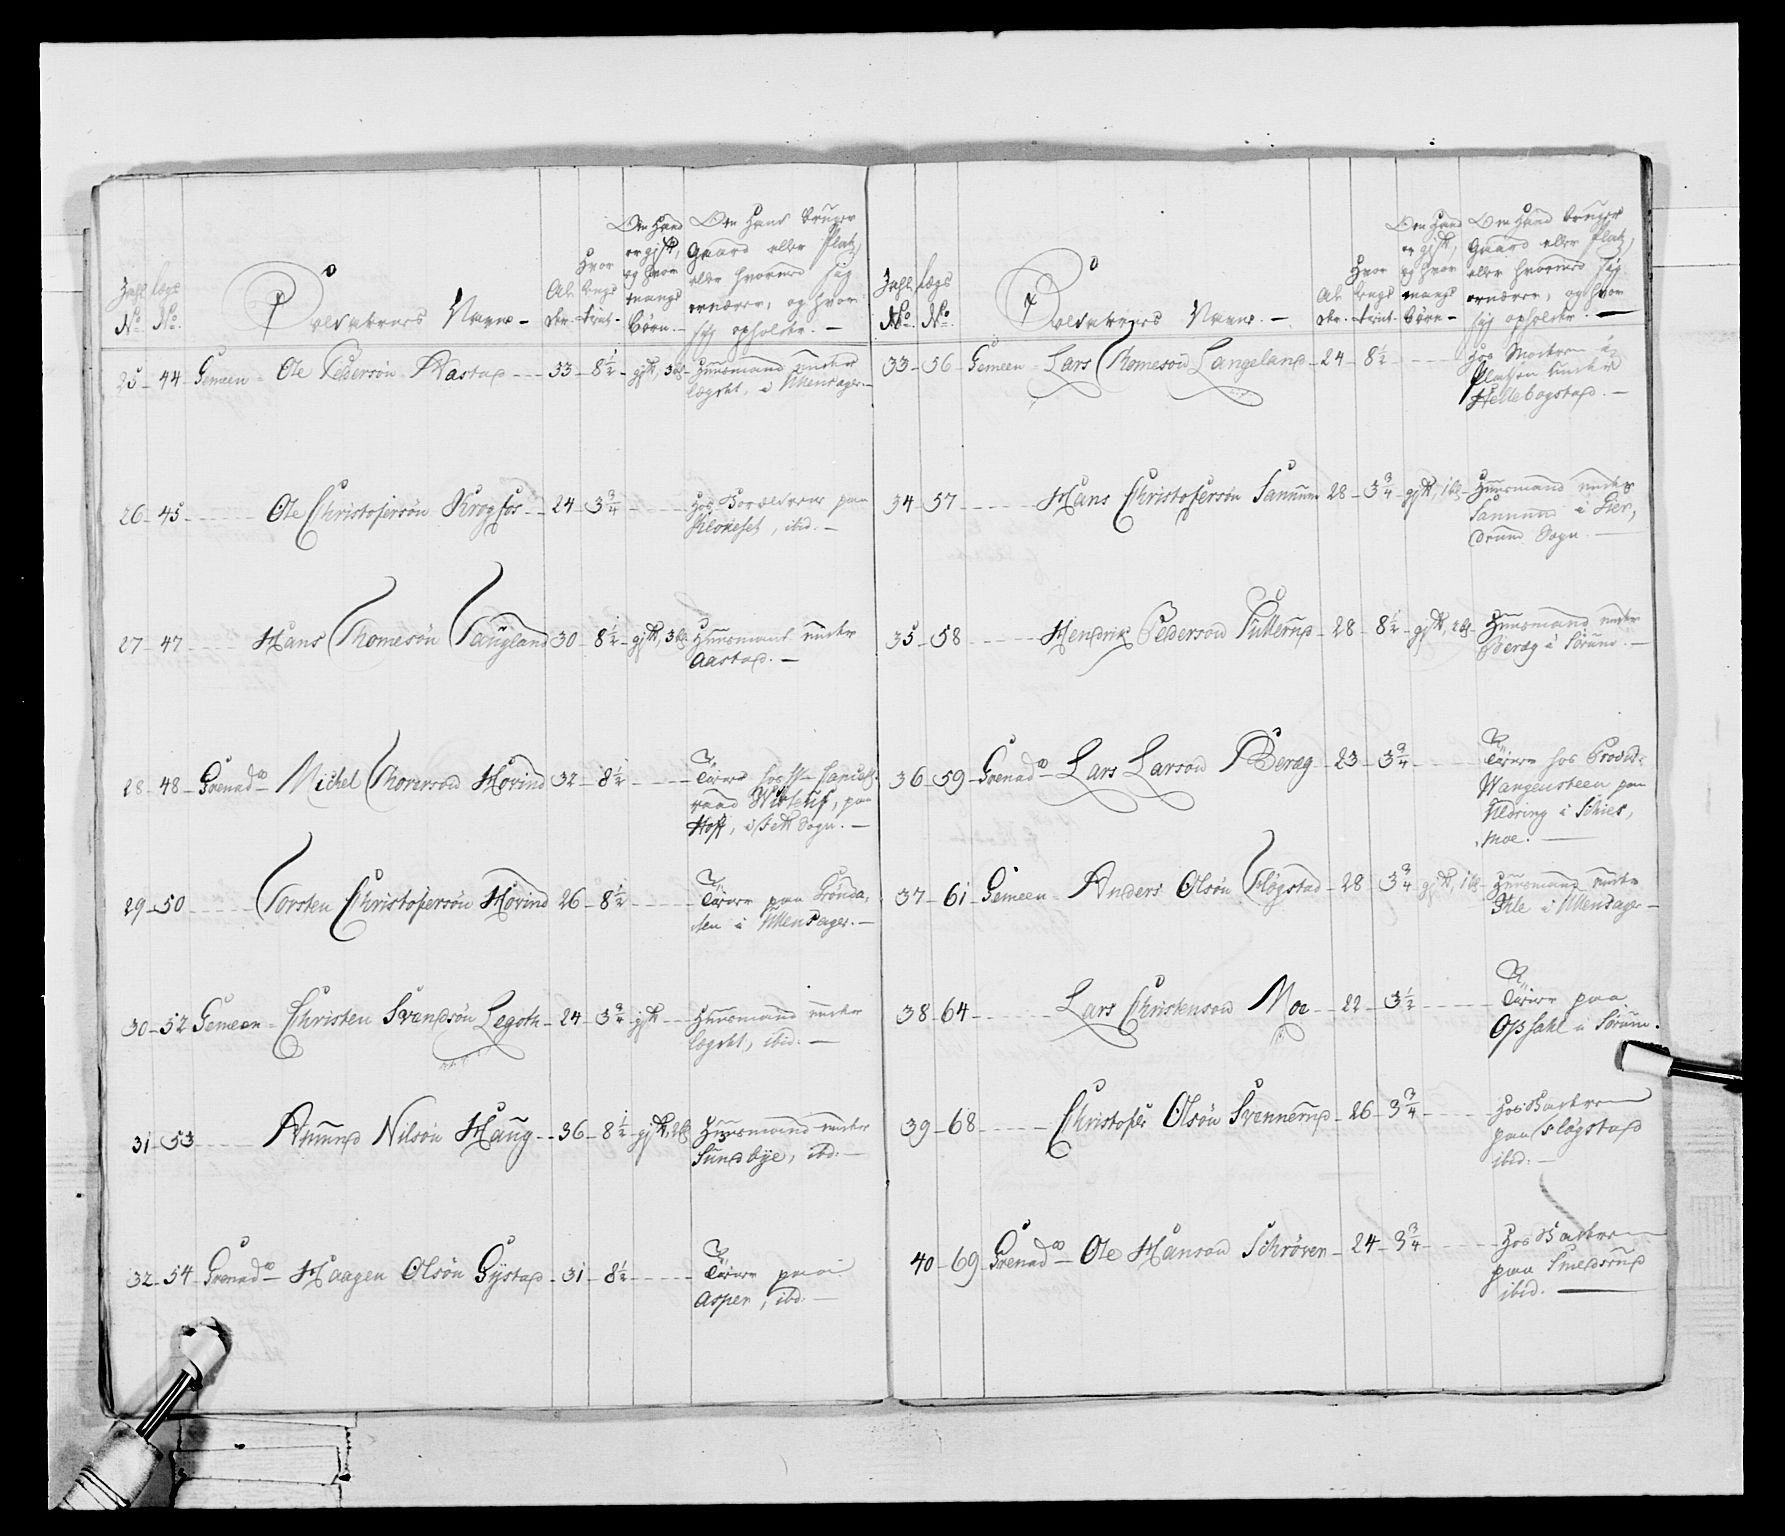 Zahl No. Lægs No. Soldaternes Navne. Alder. Hvor lenge tient. Om Hand er gift, og hvor mange Børn. Om Hand bruger Gaard eller Platz, eller hvormed sig ernærer, og hvor sig opholder.
25 - 44 - Gemeen - Ole Pedersøn Aastad - 33 - 8½ - gift, 3 b. - Huusmand under
Løgstet, i Ullensager.
26 - 45 - Ole Christofersøn Krogfos - 24 - 3¾ - hos Forældrene paa
Kloneset, ibid.
27 - 47 - Hans Thomesøn Taugland - 30 - 8½ - gift, 3 b. - Huusmand under
Aastad.
28 - 48 - Grenadr - Michel Thoresøn Hovind - 32 - 8½ - Tiener hos
raad, paa
Hoff, i Fett Sogn.
29 - 50 - Torsten Christofersøn Hovind - 26 - 8½ - Tiener paa Grønda,
len i Ullensager.
30 - 52 - Gemeen - Christen Svendsøn Legoth - 24 - 3¾ - gift - Huusmand under
Løgstet, ibid.
31 - 53 - Amund Nilsøn Haug - 36 - 8½ - gift, 2 b. - Huusmand under
Sundbye, ibd.
32 - 54 - Grenadr - Haagen Olsøn Gystad - 31 - 8½ - Tiener paa
Asper, ibd.
Zahl No. Lægs No. Soldaternes Navne. Alder. Hvor lenge tient. Om Hand er gift, og hvor mange Børn. Om Hand bruger Gaard eller Platz, eller hvormed sig ernærer, og hvor sig opholder.
33 - 56 - Gemeen - Lars Thomesøn Langeland - 24 - 8½ - hos Moderen i
Pladsen under
Hellebogstad.
34 - 57 - Hans Christofersøn Sannum - 28 - 3¾ - gift, 1 b. - Huusmand under
Sannum i Gier,
drum Sogn.
35 - 58 - Hendrik Pedersøn Tutterud - 28 - 8½ - gift, 2 b. - Huusmand under
Berag i Sørum.
36 - 59 - Grenadr - Lars Larsøn Berag - 23 - 3¾ - Tiener hos
Wangensteen paa
i Schies,
moe.
37 - 61 - Gemeen - Anders Olsøn Fløgstad - 28 - 3¾ - gift, 1 b. - Huusmand under
i Ullensager
38 - 64 - Lars Christensøn Moe - 22 - 3½ - Tiener paa
Opsahl i Sørum.
39 - 68 - Christofer Olsøn Svennerud - 26 - 3¾ - hos Faderen
paa Fløgstad
ibid.
40 - 69 - Grenadr - Ole Hansøn Schrøver - 24 - 3¾ - hos Faderen
paa Smedsrud
ibid.